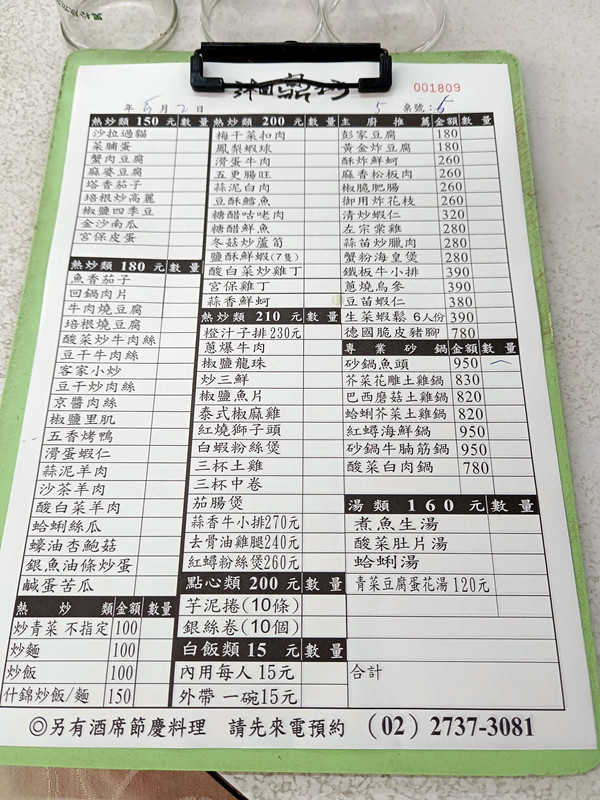 湘鼎坊
001809
年 5 月 2 日 5 桌號：5
熱炒類 150 元 數量
沙拉過貓
菜脯蛋
蟹肉豆腐
麻婆豆腐
塔香茄子
培根炒高麗
椒鹽四季豆
金沙南瓜
宮保皮蛋
熱炒類 180 元 數量
魚香茄子
回鍋肉片
牛肉燒豆腐
培根燒豆腐
酸菜炒牛肉絲
豆干牛肉絲
客家小炒
豆干炒肉絲
京醬肉絲
椒鹽里肌
五香烤鴨
滑蛋蝦仁
蒜泥羊肉
沙茶羊肉
酸白菜羊肉
蛤蜊絲瓜
蠔油杏鮑菇
銀魚油條炒蛋
鹹蛋苦瓜
熱炒類 金額 數量
炒青菜 不指定 100
炒麵 100
炒飯 100
什錦炒飯/麵 150
熱炒類 200 元 數量
梅干菜扣肉
鳳梨蝦球
滑蛋牛肉
五更腸旺
蒜泥白肉
豆酥鱈魚
糖醋咕咾肉
糖醋鮮魚
冬菇炒蘆筍
鹽酥鮮蝦(7隻)
酸白菜炒雞丁
宮保雞丁
蒜香鮮蚵
熱炒類 210 元 數量
橙汁子排230元
蔥爆牛肉
椒鹽龍珠
炒三鮮
椒鹽魚片
泰式椒麻雞
紅燒獅子頭
白蝦粉絲煲
三杯土雞
三杯中卷
茄腸煲
蒜香牛小排270元
去骨油雞腿240元
紅蟳粉絲煲260元
點心類 200 元 數量
芋泥捲(10條)
銀絲卷(10個)
白飯類 15 元 數量
內用每人 15元
外帶 一碗15元
主廚推薦 金額 數量
彭家豆腐 180
黃金炸豆腐 180
酥炸鮮蚵 260
麻香松板肉 260
椒脆肥腸 260
御用炸花枝 260
清炒蝦仁 320
左宗棠雞 280
蒜苗炒臘肉 280
蟹粉海皇煲 280
鐵板牛小排 390
蔥燒烏參 390
豆苗蝦仁 380
生菜蝦鬆 6人份 390
德國脆皮豬腳 780
專業砂鍋 金額 數量
砂鍋魚頭 950
芥菜花雕土雞鍋 830
巴西蘑菇土雞鍋 820
蛤蜊芥菜土雞鍋 820
紅蟳海鮮鍋 950
砂鍋牛腩筋鍋 950
酸菜白肉鍋 780
湯類 160 元 數量
煮魚生湯
酸菜肚片湯
蛤蜊湯
青菜豆腐蛋花湯 120元
合計
◎另有酒席節慶料理 請先來電預約 (02) 2737-3081